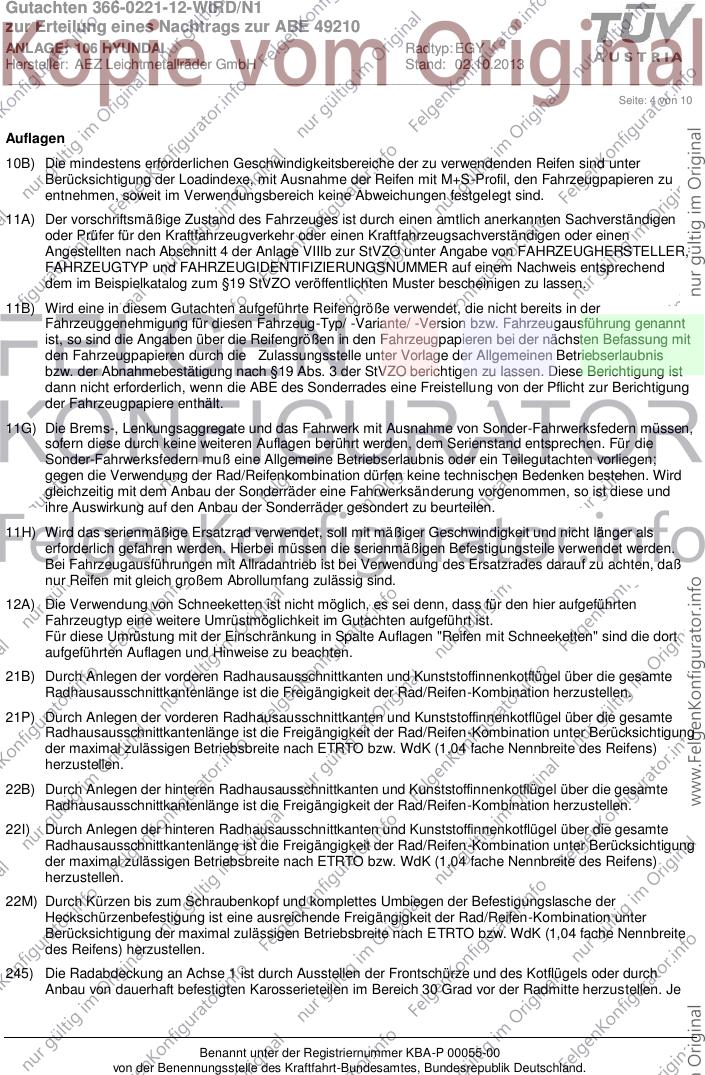 Gutachten 366-0221-12-WIRD/N1
zur Erteilung eines Nachtrags zur ABE 49210
ANLAGE: 106 HYUNDAI
Hersteller: AEZ Leichtmetallräder GmbH
Radtyp: EGY
Stand: 02.10.2013
TÜV
AUSTRIA
Kopie vom Original
Seite: 4 von 10
Auflagen
10B) Die mindestens erforderlichen Geschwindigkeitsbereiche der zu verwendenden Reifen sind unter
Berücksichtigung der Loadindexe, mit Ausnahme der Reifen mit M+S-Profil, den Fahrzeugpapieren zu
entnehmen, soweit im Verwendungsbereich keine Abweichungen festgelegt sind.
11A) Der vorschriftsmäßige Zustand des Fahrzeuges ist durch einen amtlich anerkannten Sachverständigen
oder Prüfer für den Kraftfahrzeugverkehr oder einen Kraftfahrzeugsachverständigen oder einen
Angestellten nach Abschnitt 4 der Anlage VIIIb zur StVZO unter Angabe von FAHRZEUGHERSTELLER,
FAHRZEUGTYP und FAHRZEUGIDENTIFIZIERUNGSNUMMER auf einem Nachweis entsprechend
dem im Beispielkatalog zum §19 StVZO veröffentlichten Muster bescheinigen zu lassen.
11B) Wird eine in diesem Gutachten aufgeführte Reifengröße verwendet, die nicht bereits in der
Fahrzeuggenehmigung für diesen Fahrzeug-Typ/ -Variante/ -Version bzw. Fahrzeugausführung genannt
ist, so sind die Angaben über die Reifengrößen in den Fahrzeugpapieren bei der nächsten Befassung mit
den Fahrzeugpapieren durch die Zulassungsstelle unter Vorlage der Allgemeinen Betriebserlaubnis
bzw. der Abnahmebestätigung nach §19 Abs. 3 der StVZO berichtigen zu lassen. Diese Berichtigung ist
dann nicht erforderlich, wenn die ABE des Sonderrades eine Freistellung von der Pflicht zur Berichtigung
der Fahrzeugpapiere enthält.
11G) Die Brems-, Lenkungsaggregate und das Fahrwerk mit Ausnahme von Sonder-Fahrwerksfedern müssen,
sofern diese durch keine weiteren Auflagen berührt werden, dem Serienstand entsprechen. Für die
Sonder-Fahrwerksfedern muß eine Allgemeine Betriebserlaubnis oder ein Teilegutachten vorliegen;
gegen die Verwendung der Rad/Reifenkombination dürfen keine technischen Bedenken bestehen. Wird
gleichzeitig mit dem Anbau der Sonderräder eine Fahrwerksänderung vorgenommen, so ist diese und
ihre Auswirkung auf den Anbau der Sonderräder gesondert zu beurteilen.
11H) Wird das serienmäßige Ersatzrad verwendet, soll mit mäßiger Geschwindigkeit und nicht länger als
erforderlich gefahren werden. Hierbei müssen die serienmäßigen Befestigungsteile verwendet werden.
Bei Fahrzeugausführungen mit Allradantrieb ist bei Verwendung des Ersatzrades darauf zu achten, daß
nur Reifen mit gleich großem Abrollumfang zulässig sind.
12A) Die Verwendung von Schneeketten ist nicht möglich, es sei denn, dass für den hier aufgeführten
Fahrzeugtyp eine weitere Umrüstmöglichkeit im Gutachten aufgeführt ist.
Für diese Umrüstung mit der Einschränkung in Spalte Auflagen "Reifen mit Schneeketten" sind die dort
aufgeführten Auflagen und Hinweise zu beachten.
21B) Durch Anlegen der vorderen Radhausausschnittkanten und Kunststoffinnenkotflügel über die gesamte
Radhausausschnittkantenlänge ist die Freigängigkeit der Rad/Reifen-Kombination herzustellen.
21P) Durch Anlegen der vorderen Radhausausschnittkanten und Kunststoffinnenkotflügel über die gesamte
Radhausausschnittkantenlänge ist die Freigängigkeit der Rad/Reifen-Kombination unter Berücksichtigung
der maximal zulässigen Betriebsbreite nach ETRTO bzw. WdK (1,04 fache Nennbreite des Reifens)
herzustellen.
22B) Durch Anlegen der hinteren Radhausausschnittkanten und Kunststoffinnenkotflügel über die gesamte
Radhausausschnittkantenlänge ist die Freigängigkeit der Rad/Reifen-Kombination herzustellen.
22I) Durch Anlegen der hinteren Radhausausschnittkanten und Kunststoffinnenkotflügel über die gesamte
Radhausausschnittkantenlänge ist die Freigängigkeit der Rad/Reifen-Kombination unter Berücksichtigung
der maximal zulässigen Betriebsbreite nach ETRTO bzw. WdK (1,04 fache Nennbreite des Reifens)
herzustellen.
22M) Durch Kürzen bis zum Schraubenkopf und komplettes Umbiegen der Befestigungslasche der
Heckschürzenbefestigung ist eine ausreichende Freigängigkeit der Rad/Reifen-Kombination unter
Berücksichtigung der maximal zulässigen Betriebsbreite nach ETRTO bzw. WdK (1,04 fache Nennbreite
des Reifens) herzustellen.
245) Die Radabdeckung an Achse 1 ist durch Ausstellen der Frontschürze und des Kotflügels oder durch
Anbau von dauerhaft befestigten Karosserieteilen im Bereich 30 Grad vor der Radmitte herzustellen. Je
Benannt unter der Registriernummer KBA-P 00055-00
von der Benennungsstelle des Kraftfahrt-Bundesamtes, Bundesrepublik Deutschland.
FELGEN
KONFIGURATOR
FelgenKonfigurator.info
nur gültig im Original
www.FelgenKonfigurator.info